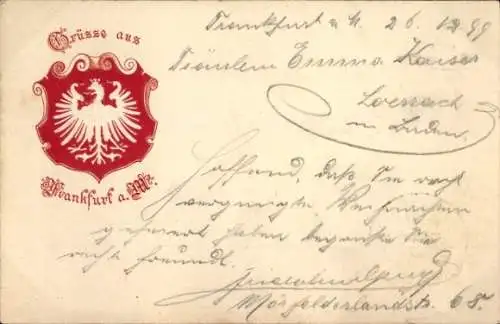 Grüsse aus
Frankfurt a. M.
Frankfurt a M. 26. 12 99
Fräulein Emma Kaiser
Loerrach
in Baden.
Hoffend, daß Sie recht
vergnügte Weihnachten
gefeiert haben begrüße Sie
recht freundl.
Mörfelderlandstr. 68.